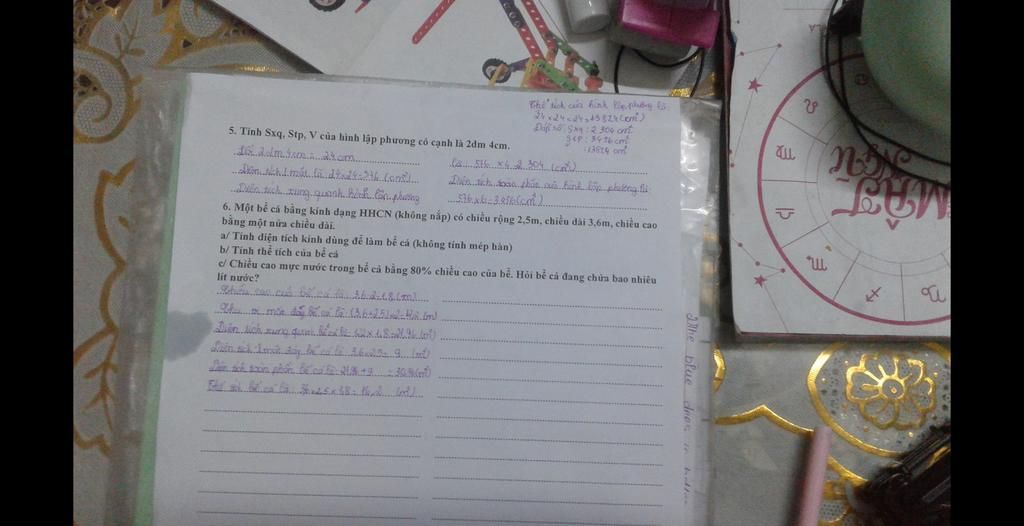 Thể tích của hình lập phương là:
24 x 24 x 24 = 13824 (cm³)
Đáp số: Sxq: 2304 cm²
Stp: 3456 cm²
: 13824 cm³
5. Tính Sxq, Stp, V của hình lập phương có cạnh là 2dm 4cm.
Đổi 2dm 4cm = 24 cm
Diện tích 1 mặt là 24x24=576 (cm²)
Diện tích xung quanh hình lập phương
là 576 x 4 = 2 304 (cm²)
Diện tích toàn phần của hình lập phương là:
576 x 6 = 3456 (cm²)
6. Một bể cá bằng kính dạng HHCN (không nắp) có chiều rộng 2,5m, chiều dài 3,6m, chiều cao
bằng một nửa chiều dài.
a/ Tính diện tích kính dùng để làm bể cá (không tính mép hàn)
b/ Tính thể tích của bể cá
c/ Chiều cao mực nước trong bể cá bằng 80% chiều cao của bể. Hỏi bể cá đang chứa bao nhiêu
lít nước?
Chiều cao của bể cá là: 3,6:2=1,8 (m)
Chu vi mặt đáy bể cá là: (3,6+2,5)x2=12,2 (m)
Diện tích xung quanh bể cá là: 12,2 x 1,8=21,96 (m²)
Diện tích 1 mặt đáy bể cá là: 3,6x2,5= 9 (m²)
Diện tích toàn phần bể cá là: 21,96+9 = 30,96 (m²)
Thể tích bể cá là: 3,6x2,5x1,8= 16,2 (m³)
The blue dress in
MẬT
NGỮ